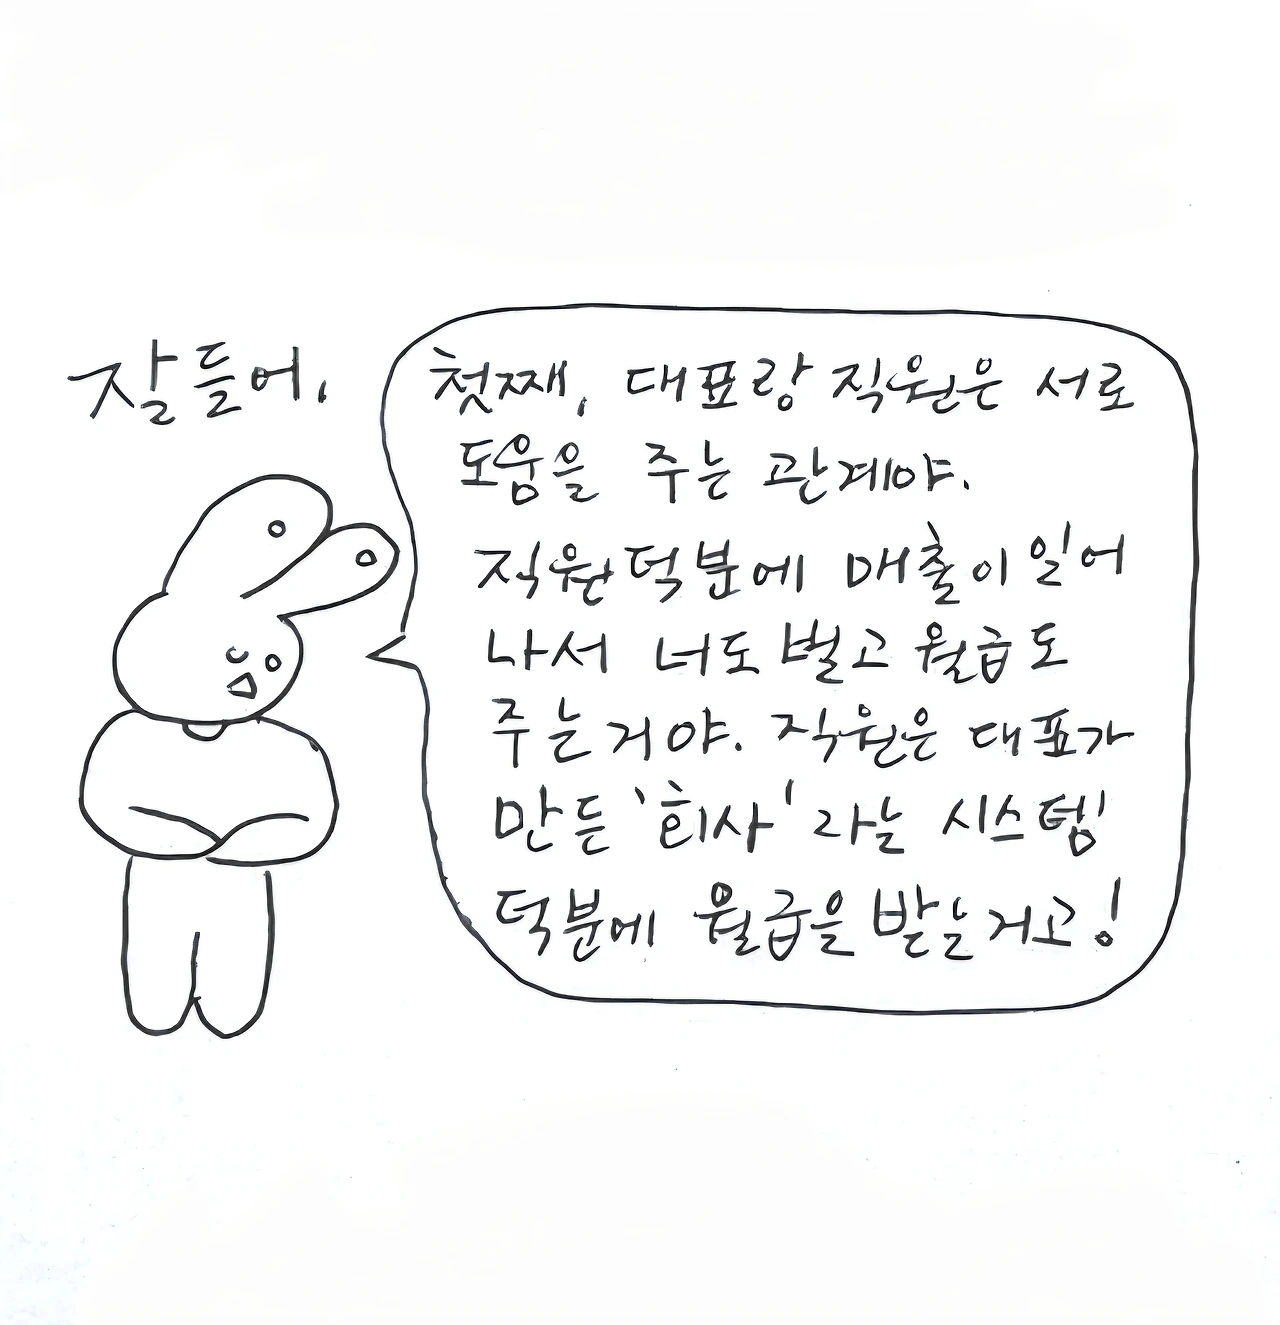 잘들어,
첫째, 대표랑 직원은 서로
도움을 주는 관계야.
직원덕분에 매출이일어
나서 너도벌고 월급도
주는거야. 직원은 대표가
만든 '회사' 라는 시스템
덕분에 월급을 받는거고!